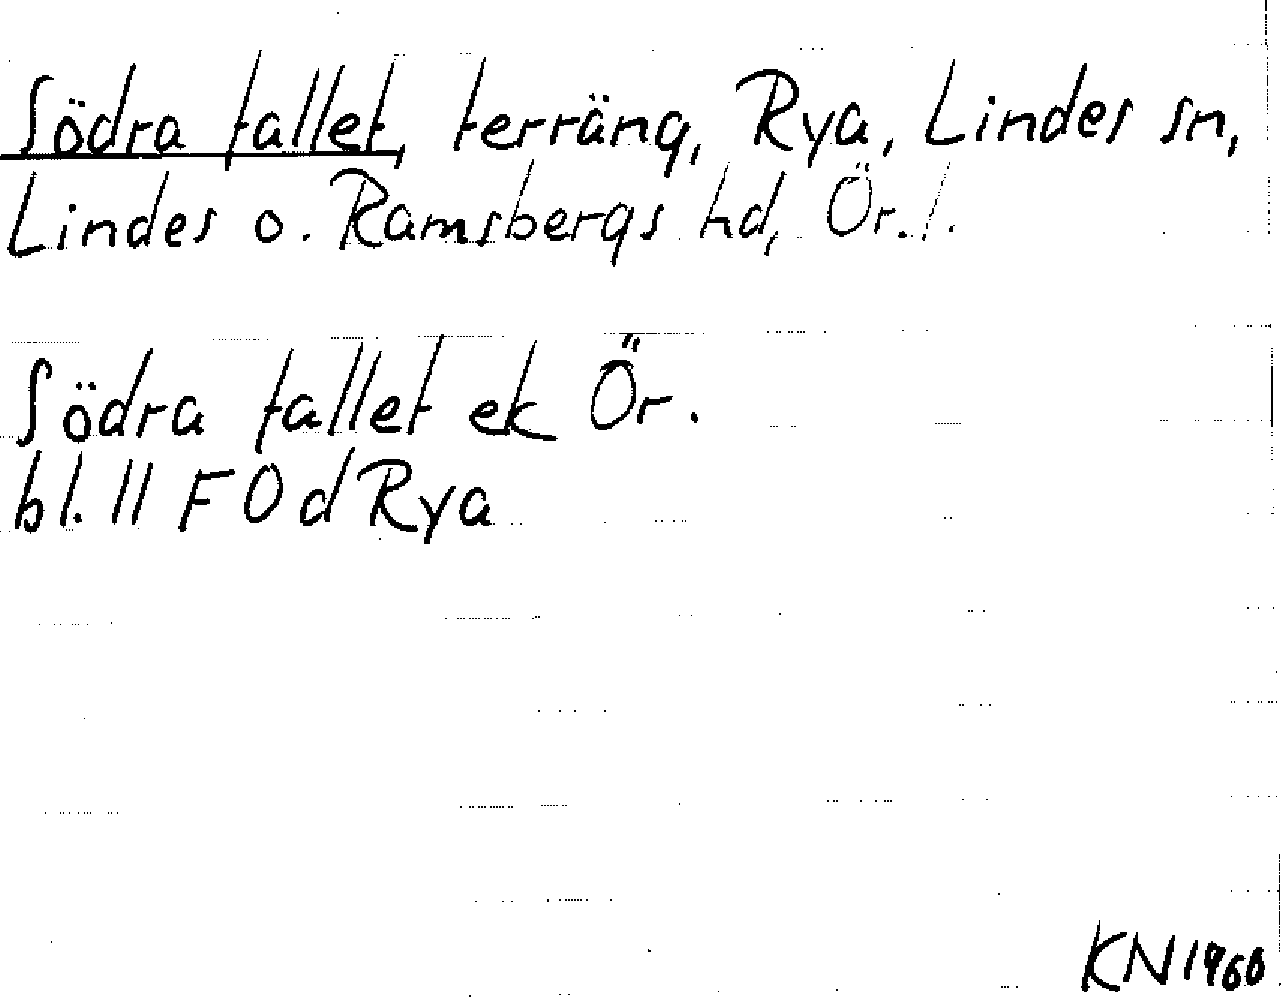 Södra fallet, terräng, Rya, Lindes sn,
Lindes o. Ramsbergs hd, Ör. l.
Södra fallet ek Ör.
bl. 11 F 0 d Rya
KN 1960